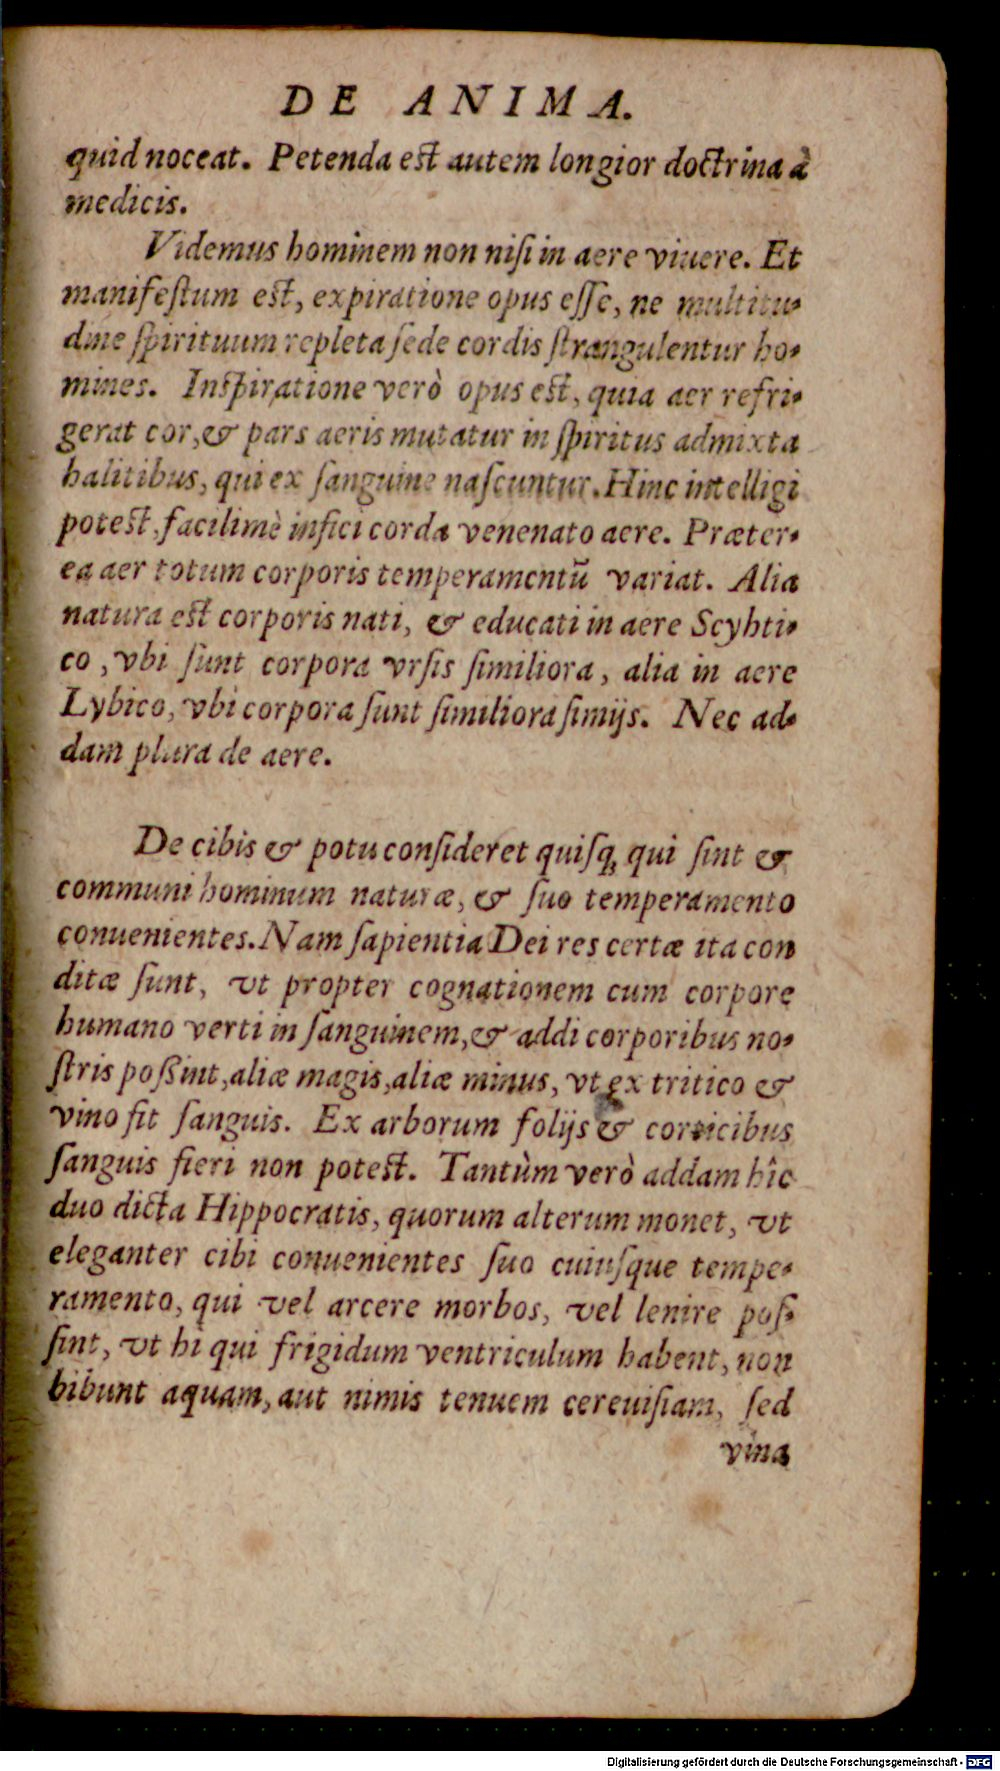 DE ANIMA.
quid noceat. Petenda est autem longior doctrina à
medicis.
Videmus hominem non niſi in aere viuere. Et
manifeſtum est, expiratione opus eſſe, ne multitu-
dine ſpirituum repleta ſede cordis ſtrangulentur ho-
mines. Inſpiratione verò opus est, quia aer refri-
gerat cor, & pars aeris mutatur in ſpiritus admixta
halitibus, qui ex ſanguine naſcuntur. Hinc intelligi
potest, facilimè infici corda venenato aere. Præter-
ea aer totum corporis temperamentũ variat. Alia
natura est corporis nati, & educati in aere Scyhti-
co, vbi ſunt corpora vrſis ſimiliora, alia in aere
Lybico, vbi corpora ſunt ſimiliora ſimijs. Nec ad-
dam plura de aere.
De cibis & potu conſideret quiſq; qui ſint &
communi hominum naturæ, & ſuo temperamento
conuenientes. Nam ſapientia Dei res certæ ita con
ditæ ſunt, vt propter cognationem cum corpore
humano verti in ſanguinem, & addi corporibus no-
ſtris poſsint, aliæ magis, aliæ minus, vt ex tritico &
vino fit ſanguis. Ex arborum folijs & corticibus
ſanguis fieri non potest. Tantùm verò addam hîc
duo dicta Hippocratis, quorum alterum monet, vt
eleganter cibi conuenientes ſuo cuiuſque tempe-
ramento, qui vel arcere morbos, vel lenire poſ-
ſint, vt hi qui frigidum ventriculum habent, non
bibunt aquam, aut nimis tenuem cereuiſiam, ſed
vina
Digitalisierung gefördert durch die Deutsche Forschungsgemeinschaft - DFG